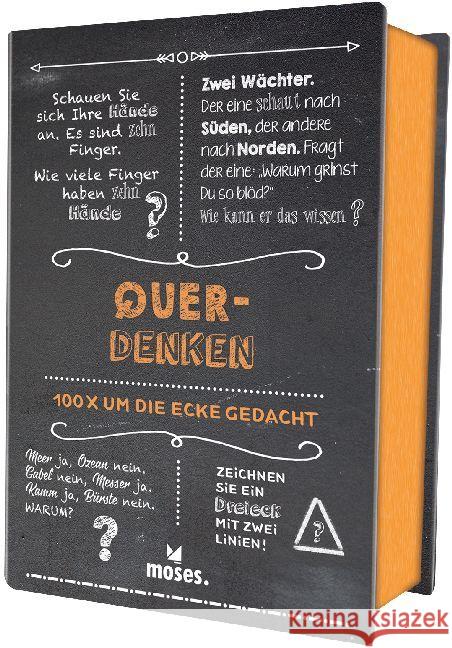 Schauen Sie
sich Ihre Hände
an. Es sind zehn
Finger.
Wie viele Finger
haben zehn
Hände
?
Zwei Wächter.
Der eine schaut nach
Süden, der andere
nach Norden. Fragt
der eine: „Warum grinst
Du so blöd?“
Wie kann er das wissen ?
QUER-
DENKEN
100 X UM DIE ECKE GEDACHT
Meer ja, Ozean nein.
Gabel nein, Messer ja.
Kamm ja, Bürste nein.
WARUM?
?
ZEICHNEN
SIE EIN
DREIECK
MIT ZWEI
LINIEN!
?
moses.
KRAMSKY